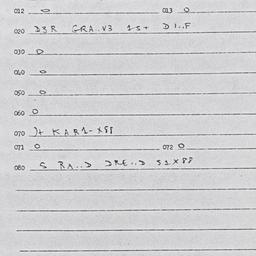 012 0 013 0
020 D3R GRA..V3 1S+ D1..F
030 0
040 0
050 0
060 0
070 )+ KAR1-X88
071 0 072 0
080 S RA..D DRE..D S1X88